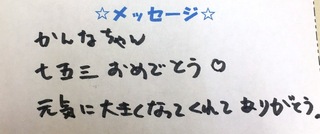 ☆メッセージ☆
かんなちゃん
七五三 おめでとう♡
元気に大きくなってくれてありがとう。